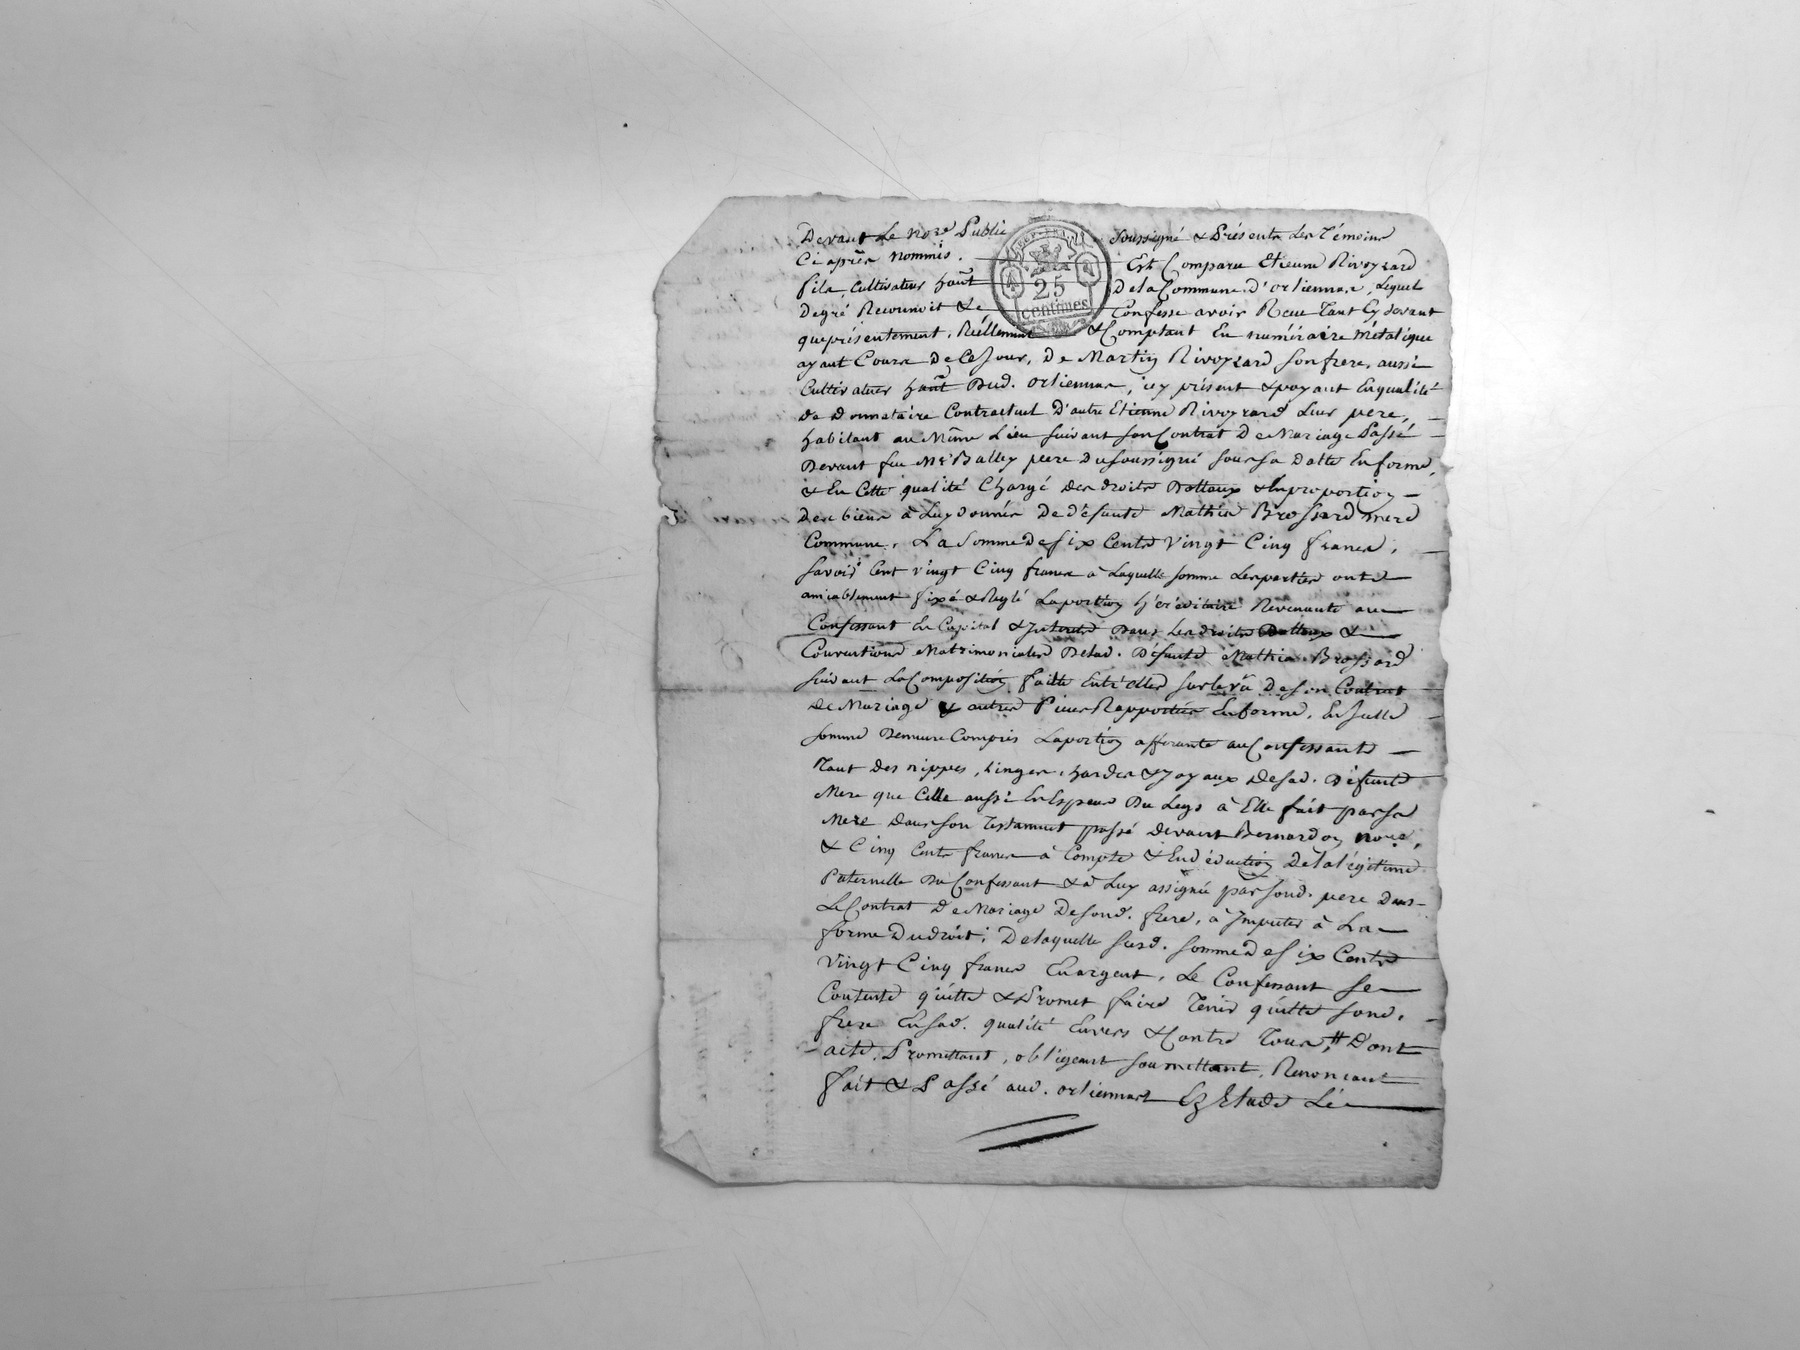 Devant Le No.re Public Soussigné & Présents les Témoins
Ci après nommés. Est Comparu Etienne Rivoyrard
fils Cultivateur hant de la Commune d'orliennas, Lequel
De gré Reconnoit & Confesse avoir Reçu Tant Cy devant
que présentement, Réellement & Comptant En numéraire Métalique
ayant Cours De Ce Jour, De Martin Rivoyrard son frere, aussi
Cultivateur hant Dud. orliennas, icy présent & payant En qualité
de Donnataire Contractuel D'autre Etienne Rivoyrard Leur pere,
habitant au Même Lieu suivant son Contrat De Mariage Passé
Devant feu Me Balley pere Du soussigné sous sa Datte En forme,
& En Cette qualité Chargé Des droits Dottaux & En proportion
Des biens à Luy donnés De défunte Mathie Brossard mere
Commune, La Somme De six Cents Vingt Cinq francs,
Savoir Cent vingt Cinq francs à Laquelle somme Les parties ont
amiablement fixé & Reglé La portion héréditaire Revenante au
Confessant En Capital & Interets Dans Les droits Dottaux &
Conventions Matrimoniales De lad. Défunte Mathie Brossard
suivant La Composition faitte Entr'Elles sur le vû De son Contrat
De Mariage & autres Pieces Rapportées En forme, En Jcelle
somme Demeure Compris La portion afferante au Confessant
Tant des nippes, Linges, hardes & Joyaux De sad. Défunte
Mere que Celle aussi En Espece Du Legs à Elle fait par sa
Mere Dans son Testament passé Devant Bernardon Nore,
& Cinq Cents francs à Compte & En déduction De la légitime
Paternelle Du Confessant & à Luy assignée par sond. pere Dans
Le Contrat De Mariage De sond. frere, à Imputer à La
forme Du droit; De laquelle susd. somme De six Cents
Vingt Cinq francs En argent, Le Confessant se
Contente quitte & Promet faire Tenir quitte sond.
frere En sad. qualité Envers & Contre Tous, # D'ont
acte. Promettant, obligeant soumettant, Renoncant
fait & Passé aud. orliennas Ez Etude Le
25
centimes